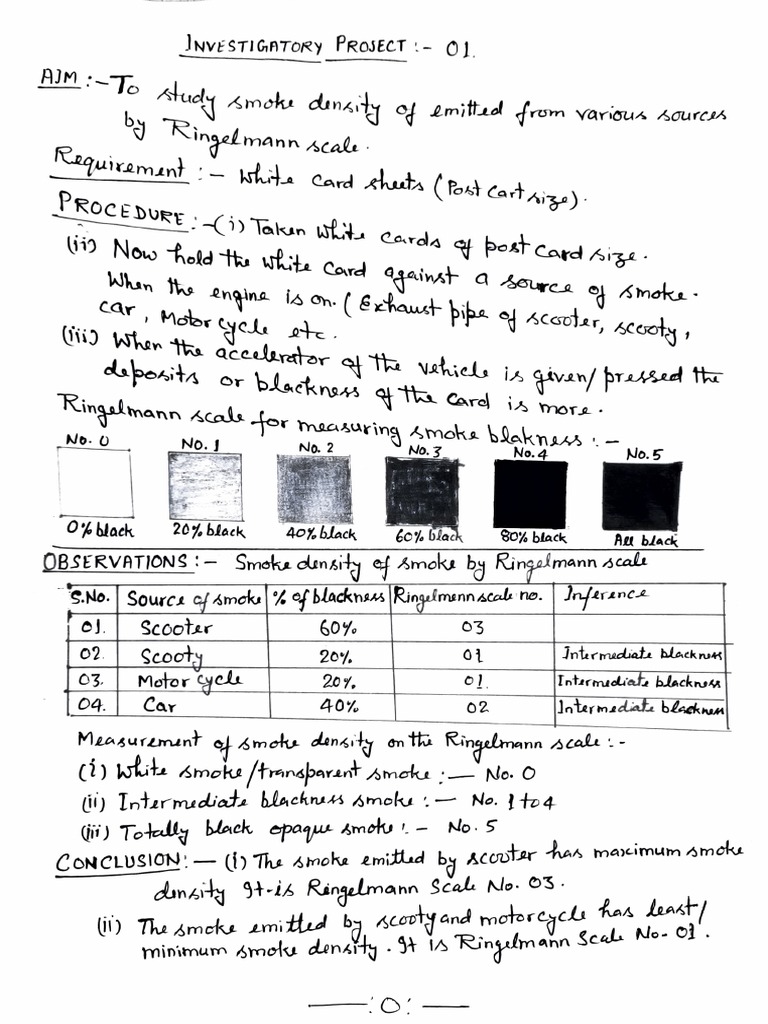 INVESTIGATORY PROJECT :- 01.
AIM :- To study smoke density of emitted from various sources
by Ringelmann scale.
Requirement :- White card sheets (Post Cart size).
PROCEDURE :- (i) Taken white cards of post card size.
(ii) Now hold the white card against a source of smoke.
When the engine is on. (Exhaust pipe of scooter, scooty,
car, Motor cycle etc.
(iii) When the accelerator of the vehicle is given/pressed the
deposits or blackness of the card is more.
Ringelmann scale for measuring smoke blakness :-
No. 0 No. 1 No. 2 No. 3 No. 4 No. 5
0% black 20% black 40% black 60% black 80% black All black
OBSERVATIONS :- Smoke density of smoke by Ringelmann scale
S.No. Source of smoke % of blackness Ringelmenn scale no. Inference
01. Scooter 60% 03
02. Scooty 20% 01 Intermediate blackness
03. Motor cycle 20% 01. Intermediate blackness
04. Car 40% 02 Intermediate blackness
Measurement of smoke density on the Ringelmann scale :-
(i) White smoke/transparent smoke :— No. 0
(ii) Intermediate blackness smoke :— No. 1 to 4
(iii) Totally black opaque smoke :- No. 5
CONCLUSION :— (i) The smoke emitted by scooter has maximum smoke
density It is Ringelmann Scale No. 03.
(ii) The smoke emitted by scooty and motorcycle has least/
minimum smoke density. It is Ringelmann Scale No- 01.
—:0:—